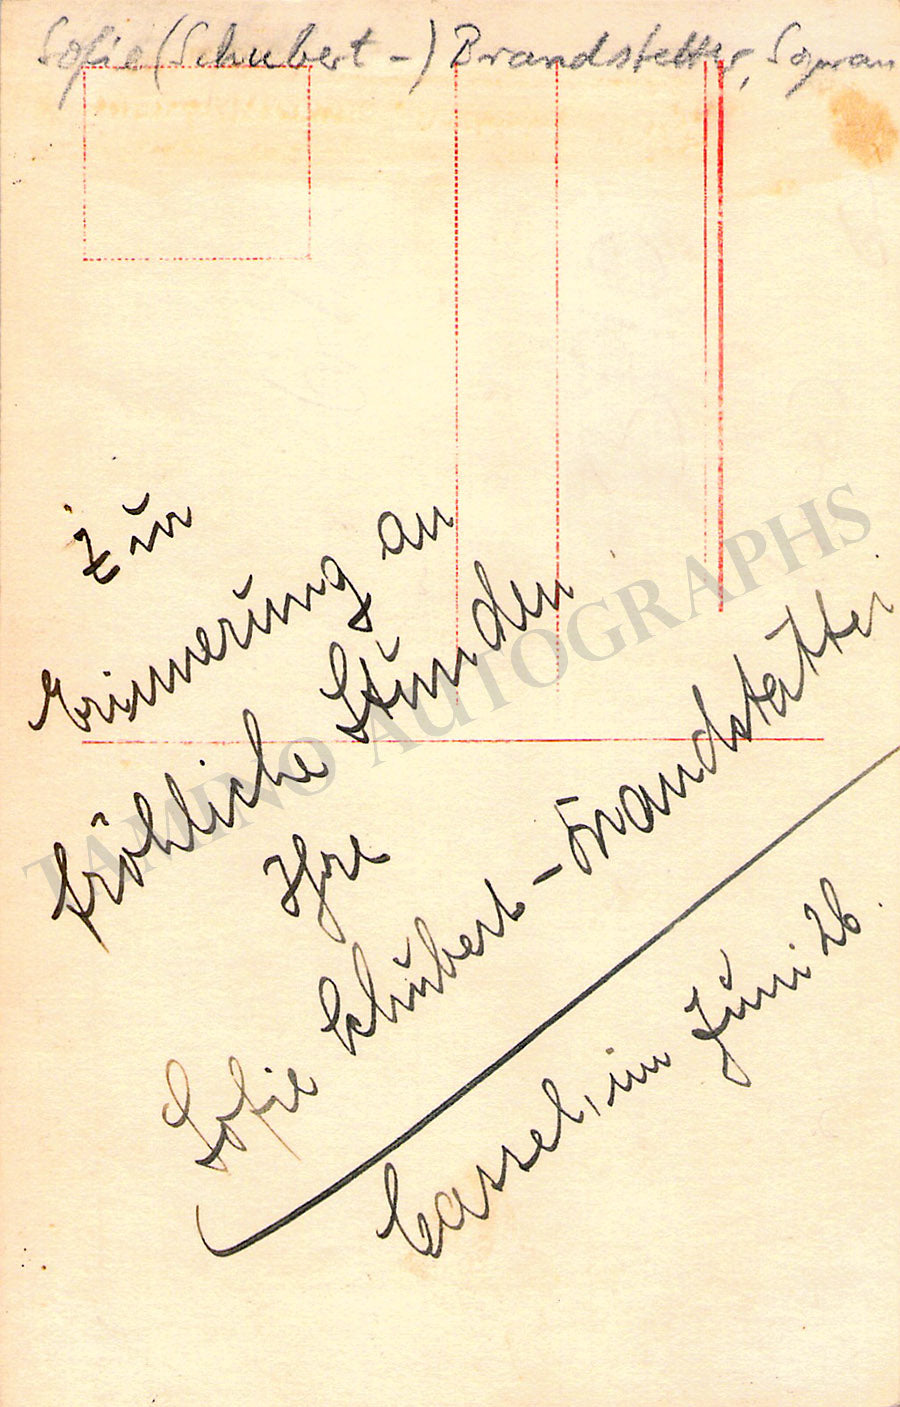 Sofie (Schubert -) Brandstetter, Sopran
Zur
Erinnerung an
fröhliche Stunden
Ihre
Sofie Schubert-Brandstätter
Cassel, im Juni 26.
TAMINO AUTOGRAPHS